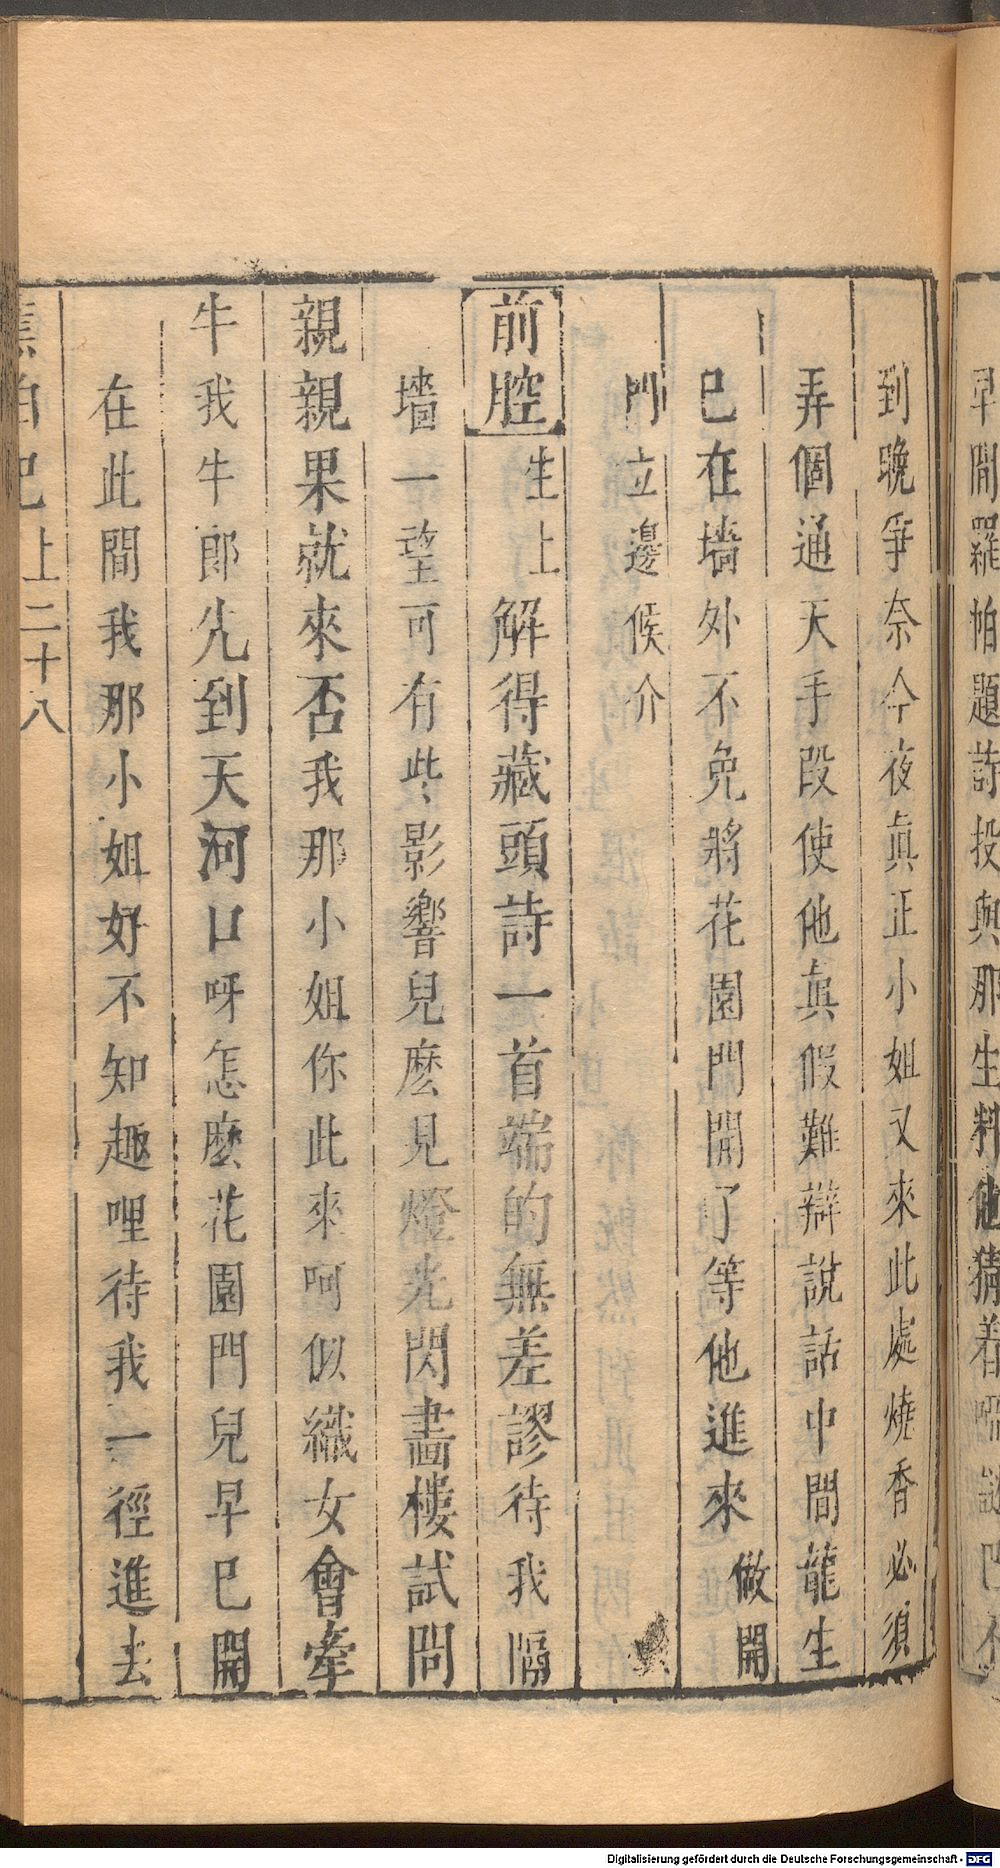 早間羅帕題詩投與那生料他猜着啞謎
到晚爭奈今夜眞正小姐又來此處燒香必須
弄個通天手段使他眞假難辯說話中間龍生
已在墻外不免將花園門開了等他進來做開
門立邊候介
前腔生上解得藏頭詩一首端的無差謬待我隔
墻一望可有些影響兒麽見燈光閃畫樓試問
親親果就來否我那小姐你此來呵似織女會牽
牛我牛郎先到天河口呀怎麽花園門兒早已開
在此間我那小姐好不知趣哩待我一徑進去
蕉帕記上二十八
Digitalisierung gefördert durch die Deutsche Forschungsgemeinschaft - DFG